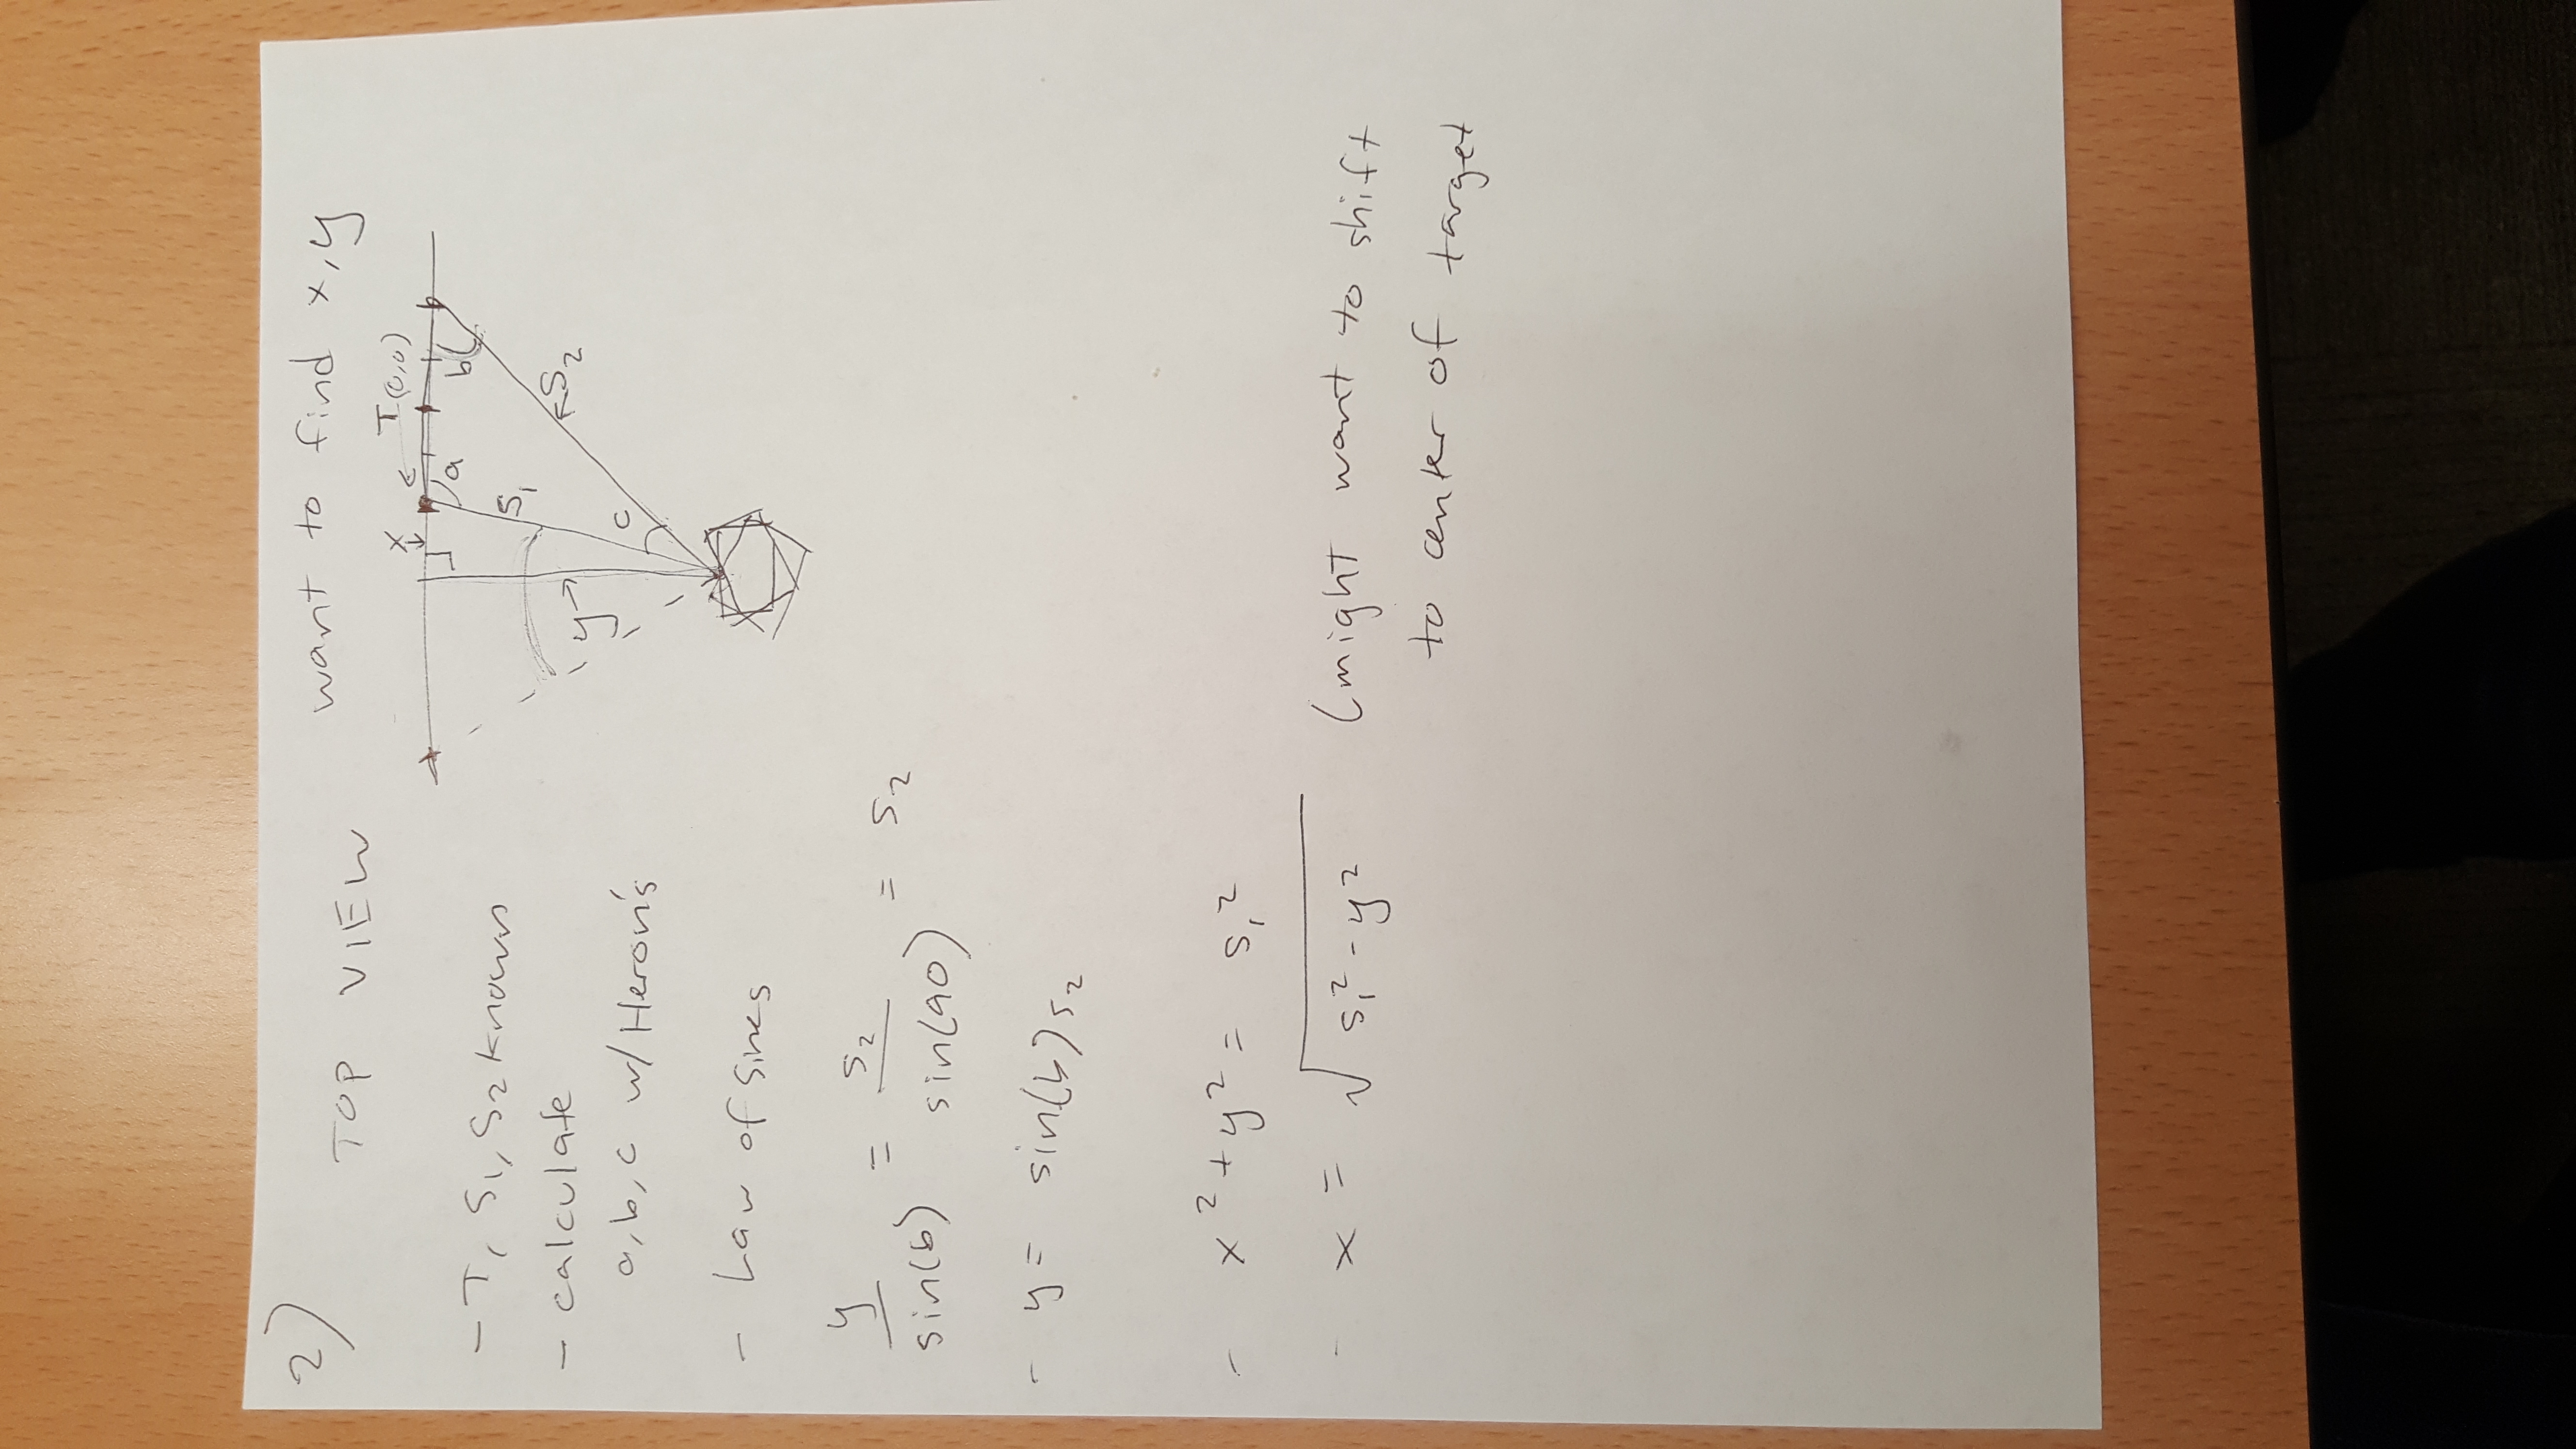 2)
TOP VIEW
want to find x, y
x
T(0,0)
a
b
S₁
S₂
y
c
- T, S₁, S₂ known
- calculate
a, b, c w/ Heron's
- Law of Sines
y / sin(b) = s₂ / sin(90) = s₂
- y = sin(b) s₂
- x² + y² = s₁²
- x = √(s₁² - y²) (might want to shift
to center of target